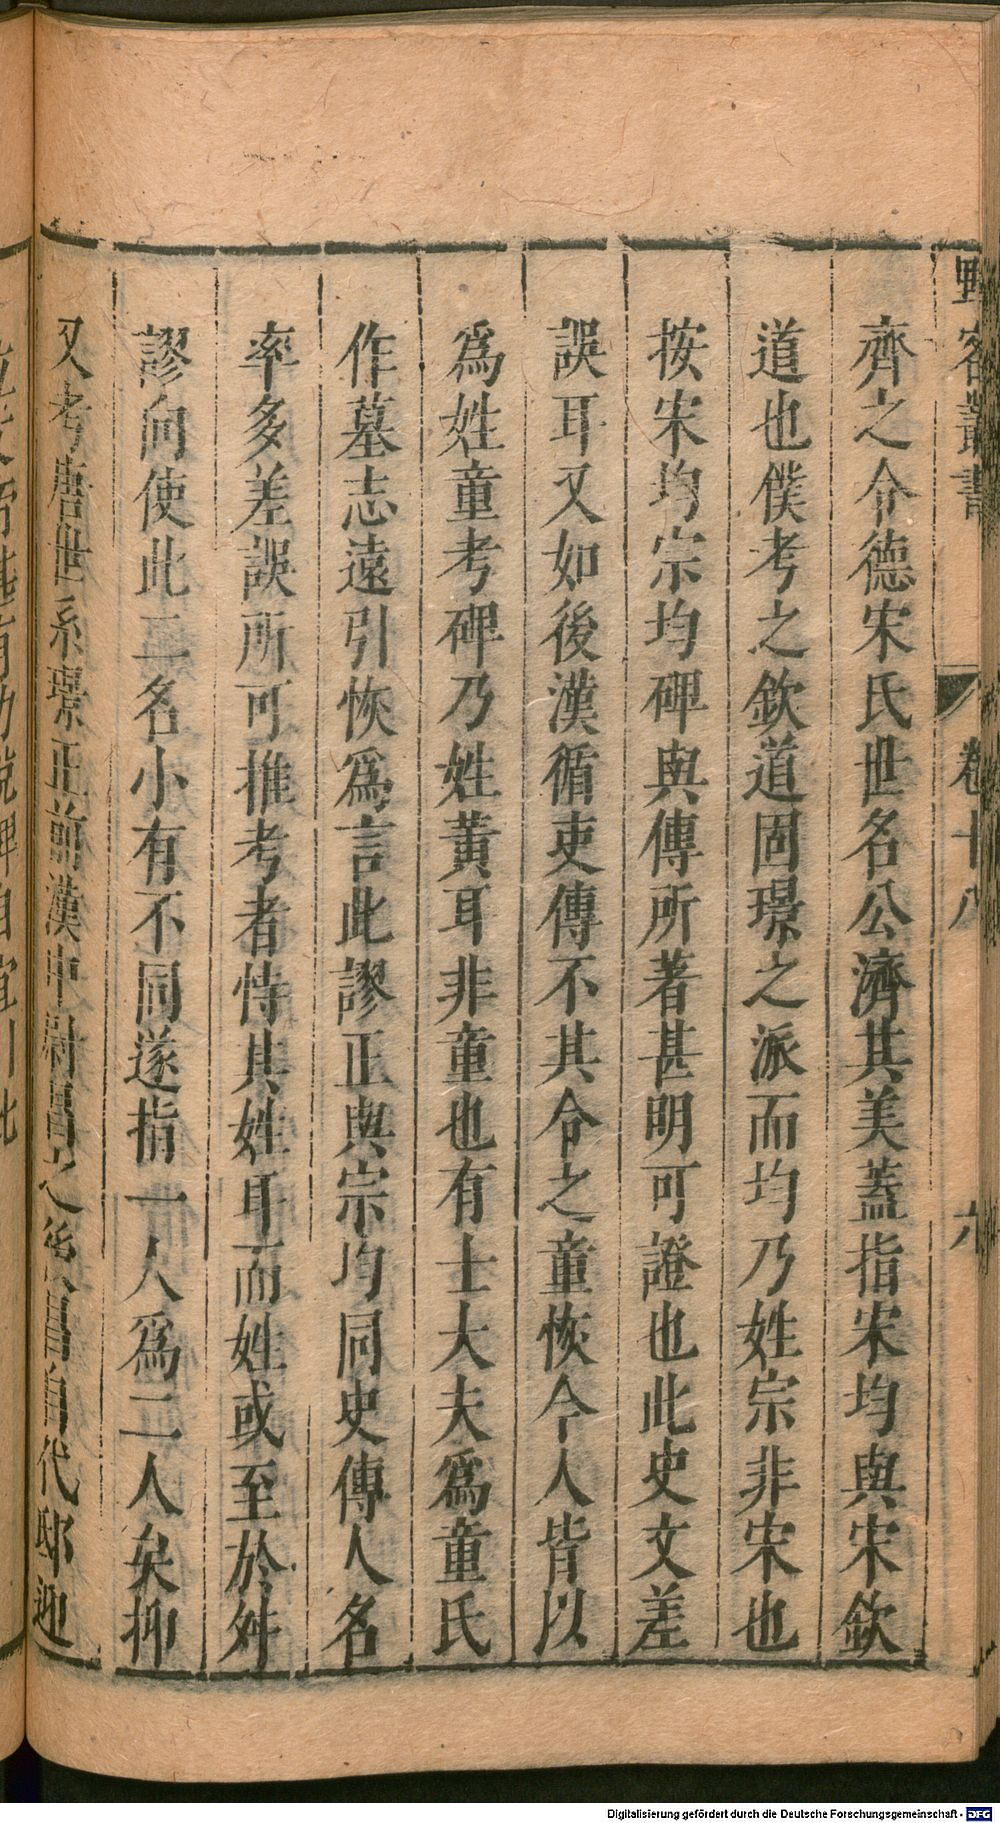 野客叢書 卷十八 六
齊之令德宋氏世名公濟其美蓋指宋均與宋欽
道也僕考之欽道固璟之派而均乃姓宗非宋也
按宋均宗均碑與傳所著甚明可證也此史文差
誤耳又如後漢循吏傳不其令之童恢令人皆以
爲姓童考碑乃姓黃耳非童也有士大夫爲童氏
作墓志遠引恢爲言此謬正與宗均同史傳人名
率多差誤所可推考者恃其姓耳而姓或至於舛
謬向使此二名小有不同遂指一人爲二人矣抑
又考唐世系璟正前漢中尉昌之後昌自代邸迎
Digitalisierung gefördert durch die Deutsche Forschungsgemeinschaft - DFG